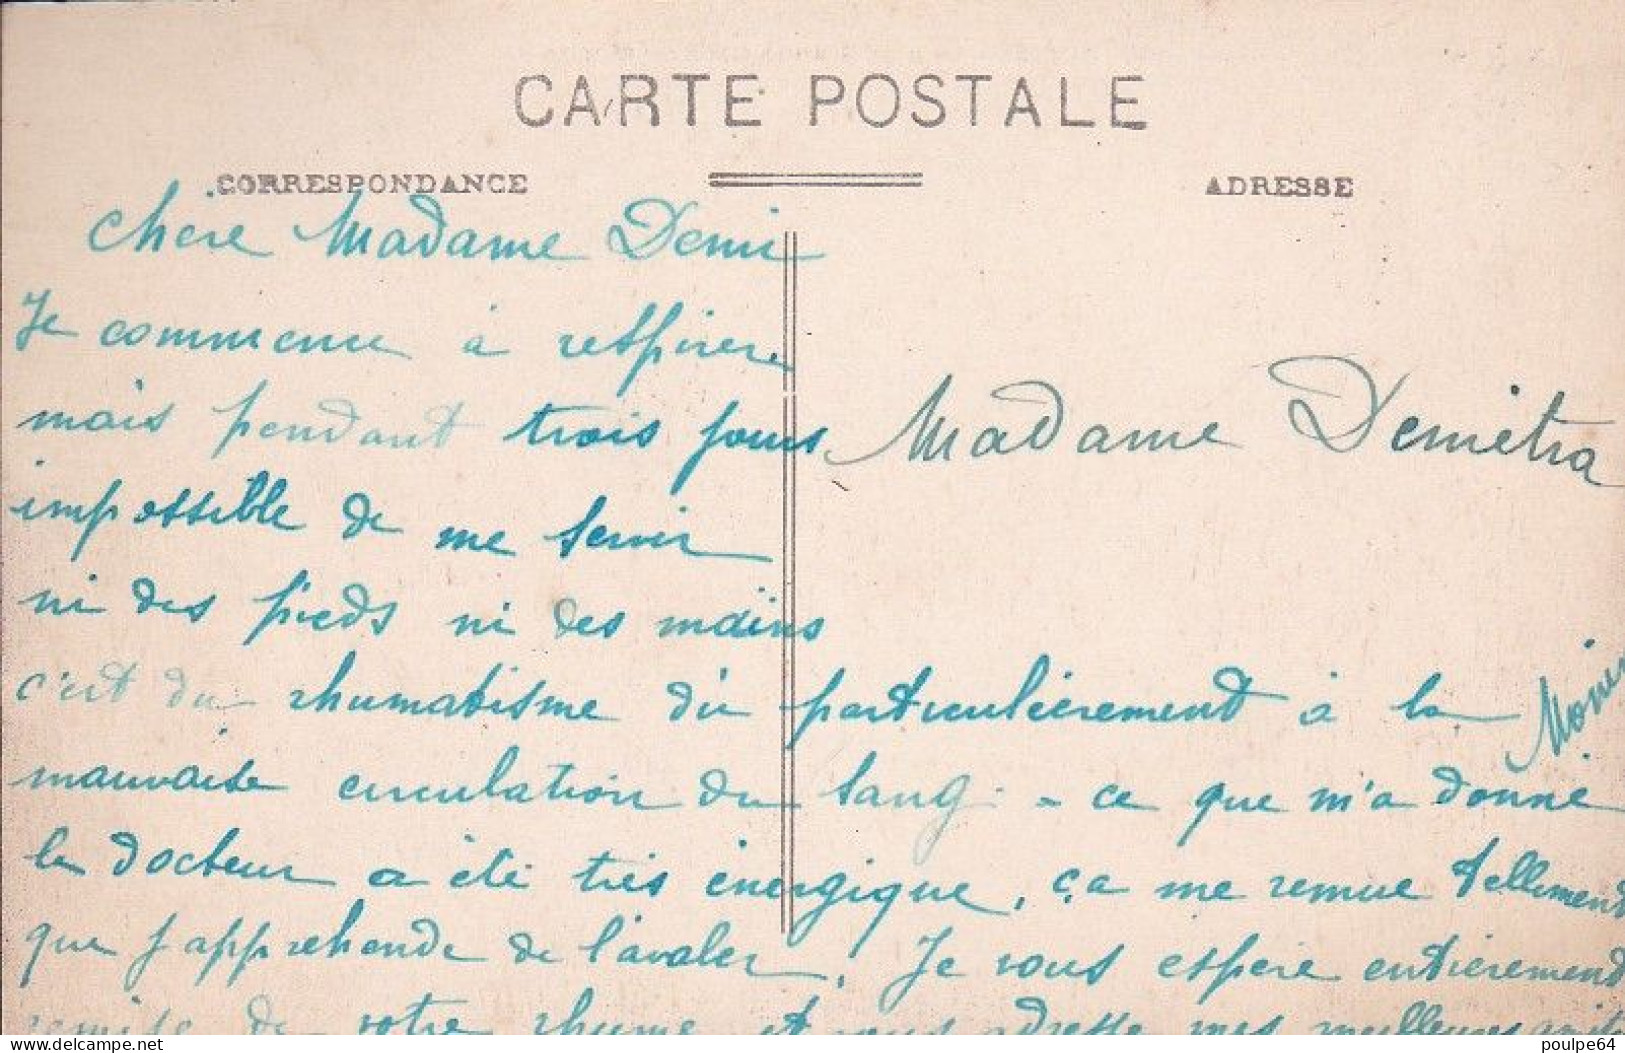 CARTE POSTALE
CORRESPONDANCE
ADRESSE
Chère Madame Demi
Je commence à respirer
mais pendant trois jours
impossible de me servir
ni des pieds ni des mains
c'est du rhumatisme dû particulièrement à la
mauvaise circulation du sang - ce que m'a donné
le docteur a été très énergique, ça me remue tellement
que j'apprehende de l'avaler. Je vous espère entièrement
remise de votre rhume et vous adresse mes meilleures
Madame Demètra
www.delcampe.net
poulpe64